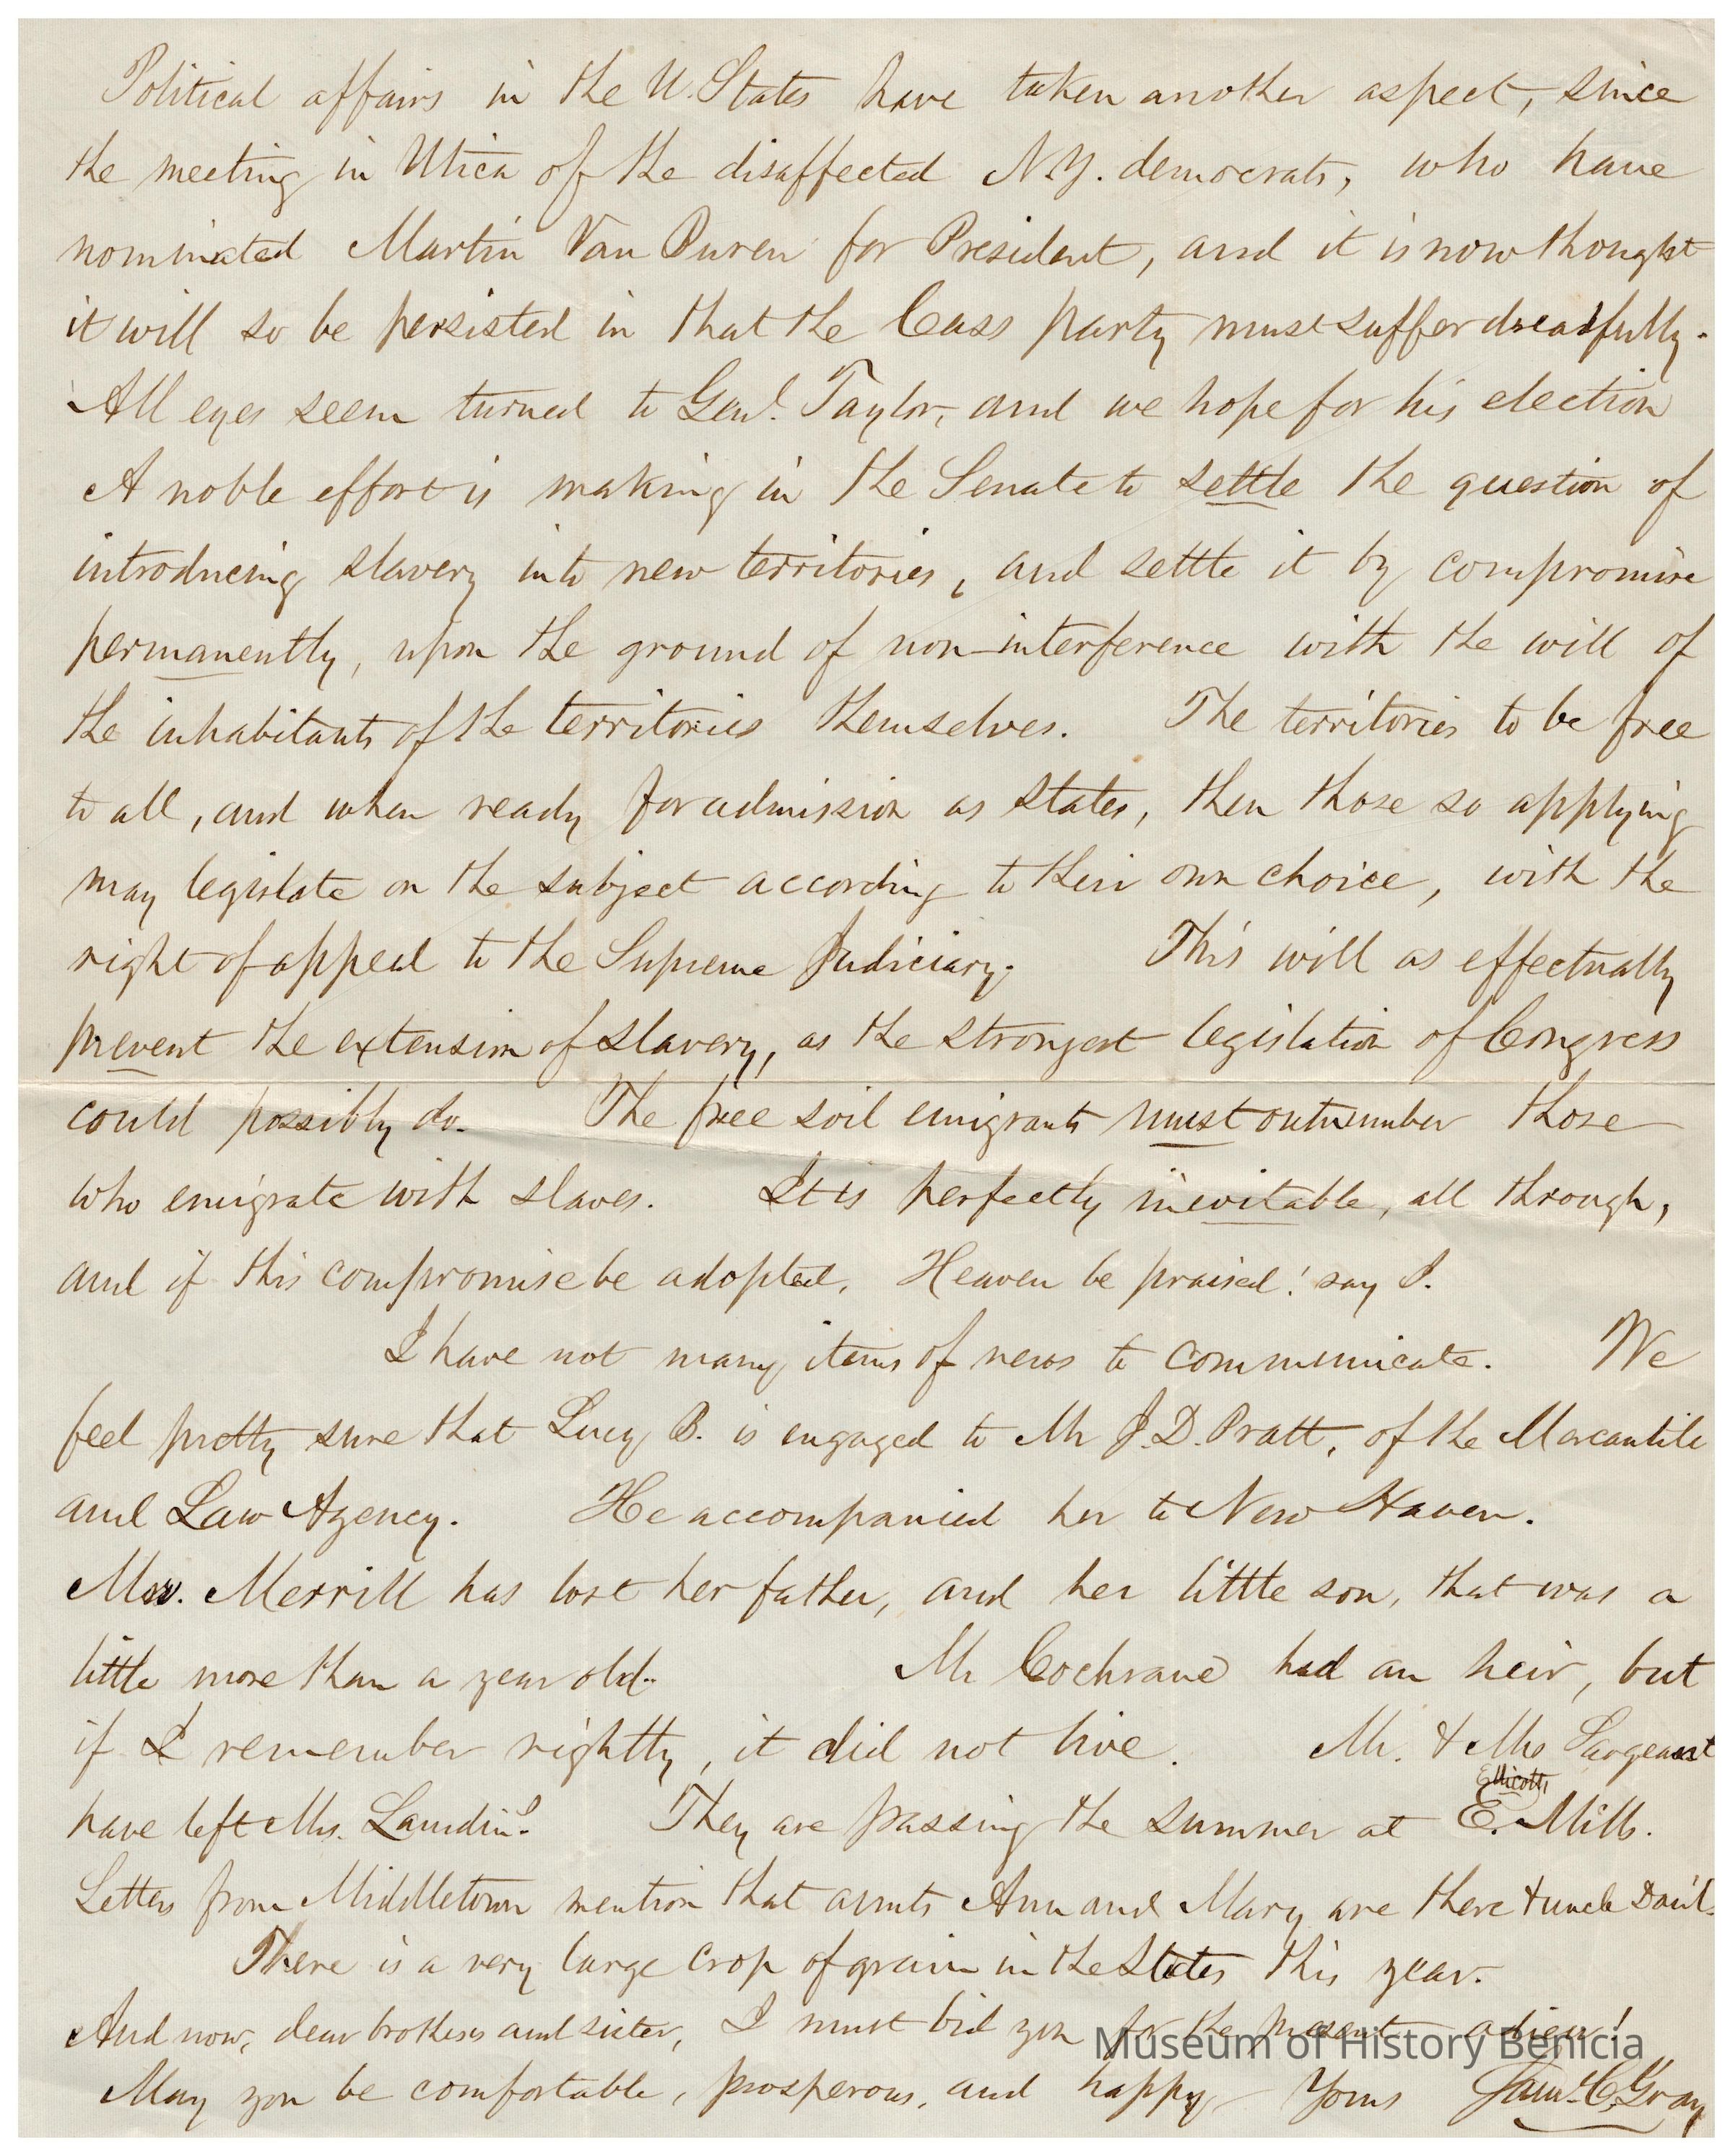 Political affairs in the U. States have taken another aspect, since
the meeting in Utica of the disaffected N.Y. democrats, who have
nominated Martin Van Buren for President, and it is now thought
it will so be persisted in that the Cass party must suffer dreadfully.
All eyes seem turned to Genl. Taylor, and we hope for his election
A noble effort is making in the Senate to settle the question of
introducing slavery into new territories, and settle it by compromise
permanently, upon the ground of non-interference with the will of
the inhabitants of the territories themselves. The territories to be free
to all, and when ready for admission as states, then those so applying
may legislate on the subject according to their own choice, with the
right of appeal to the Supreme Judiciary. This will as effectually
prevent the extension of slavery, as the strongest legislation of Congress
could possibly do. The free soil emigrants must outnumber those
who emigrate with slaves. It is perfectly inevitable, all through,
and if this compromise be adopted, Heaven be praised! say I.
I have not many items of news to communicate. We
feel pretty sure that Lucy B. is engaged to Mr J.D. Pratt, of the Mercantile
and Law Agency. He accompanied her to New Haven.
Mrs. Merrill has lost her father, and her little son, that was a
little more than a year old. Mr Cochrane had an heir, but
if I remember rightly, it did not live. Mr. & Mrs Sargeant
Ellicotts
have left Mrs. They are passing the summer at E. Mills.
Letters from Middletown mention that aunts Ann and Mary are there & uncle Danl.
There is a very large crop of grain in the States this year.
And now, dear brothers and sister, I must bid you for the present adieu!
Museum of History Benicia
May you be comfortable, prosperous, and happy Yours Saml. C. Gray